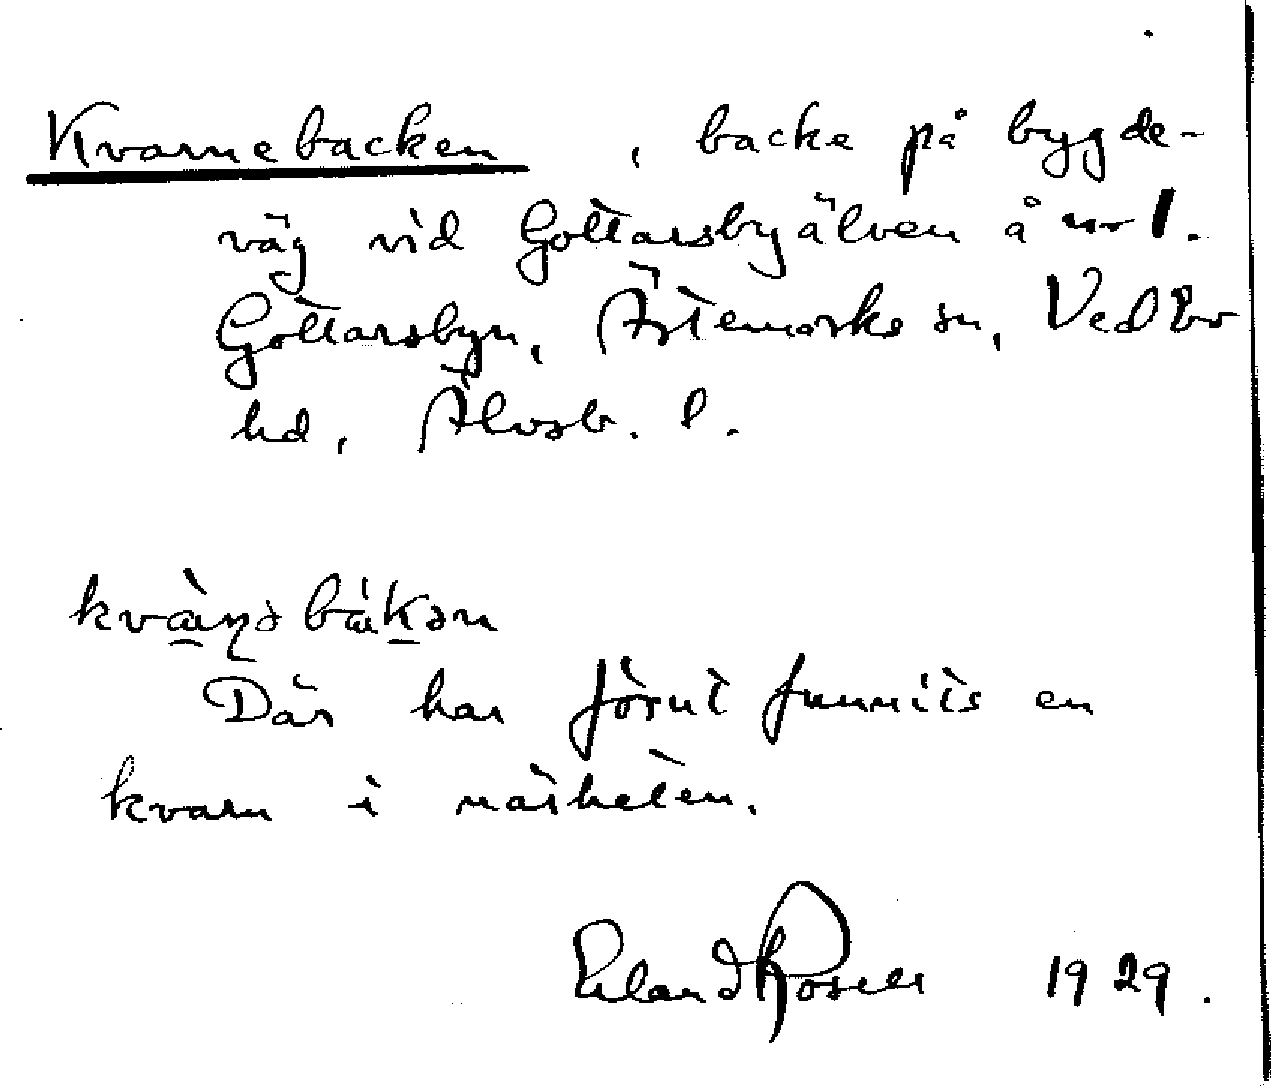 Kvarnebacken, backe på bygde-
väg vid Gottarsbyälven å nr 1.
Gottarsbyn, Ärtemarks sn, Vedbo
hd, Älvsb. l.
Där har förut funnits en
kvarn i närheten.
Erland Rosell 1929.